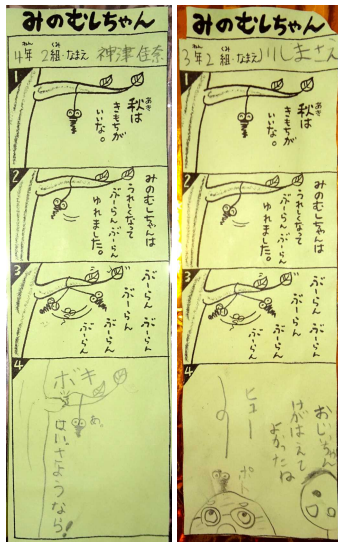 みのむしちゃん
4年 2組・なまえ 神津佳奈
ねん くみ
1
あき
秋は
きもちが
いいな。
2
みのむしちゃんは
うれしくなって
ぶーらんぶーらん
ゆれました。
3
ぶーらん ぶーらん
ぶーらん ぶーらん
ぶーらん
4
ボキ
あ。
はい、さようなら!
みのむしちゃん
3年 2組・なまえ 川しまさえ
ねん くみ
1
あき
秋は
きもちが
いいな。
2
みのむしちゃんは
うれしくなって
ぶーらんぶーらん
ゆれました。
3
ぶーらん ぶーらん
ぶーらん ぶーらん
ぶーらん
4
おじいちゃん
けがはえて
よかったね
ヒュー